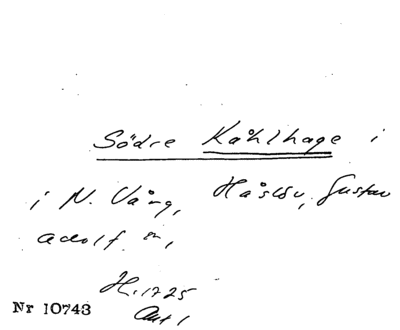 Södre Kåhlhage i
i N. Vång, Håslöv, Gustav
Adolf sn,
H. 1725
Akt 1
Nr 10743